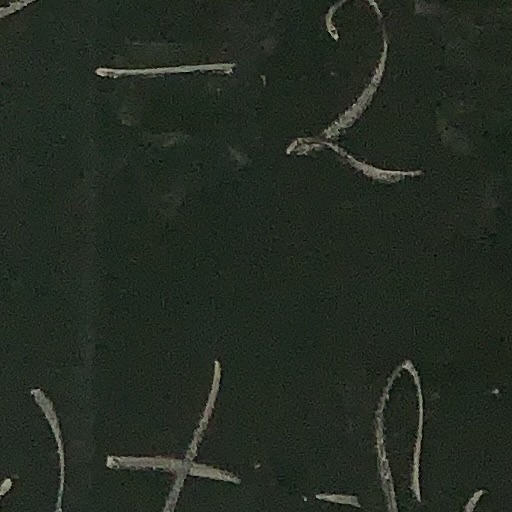 - 2
) +